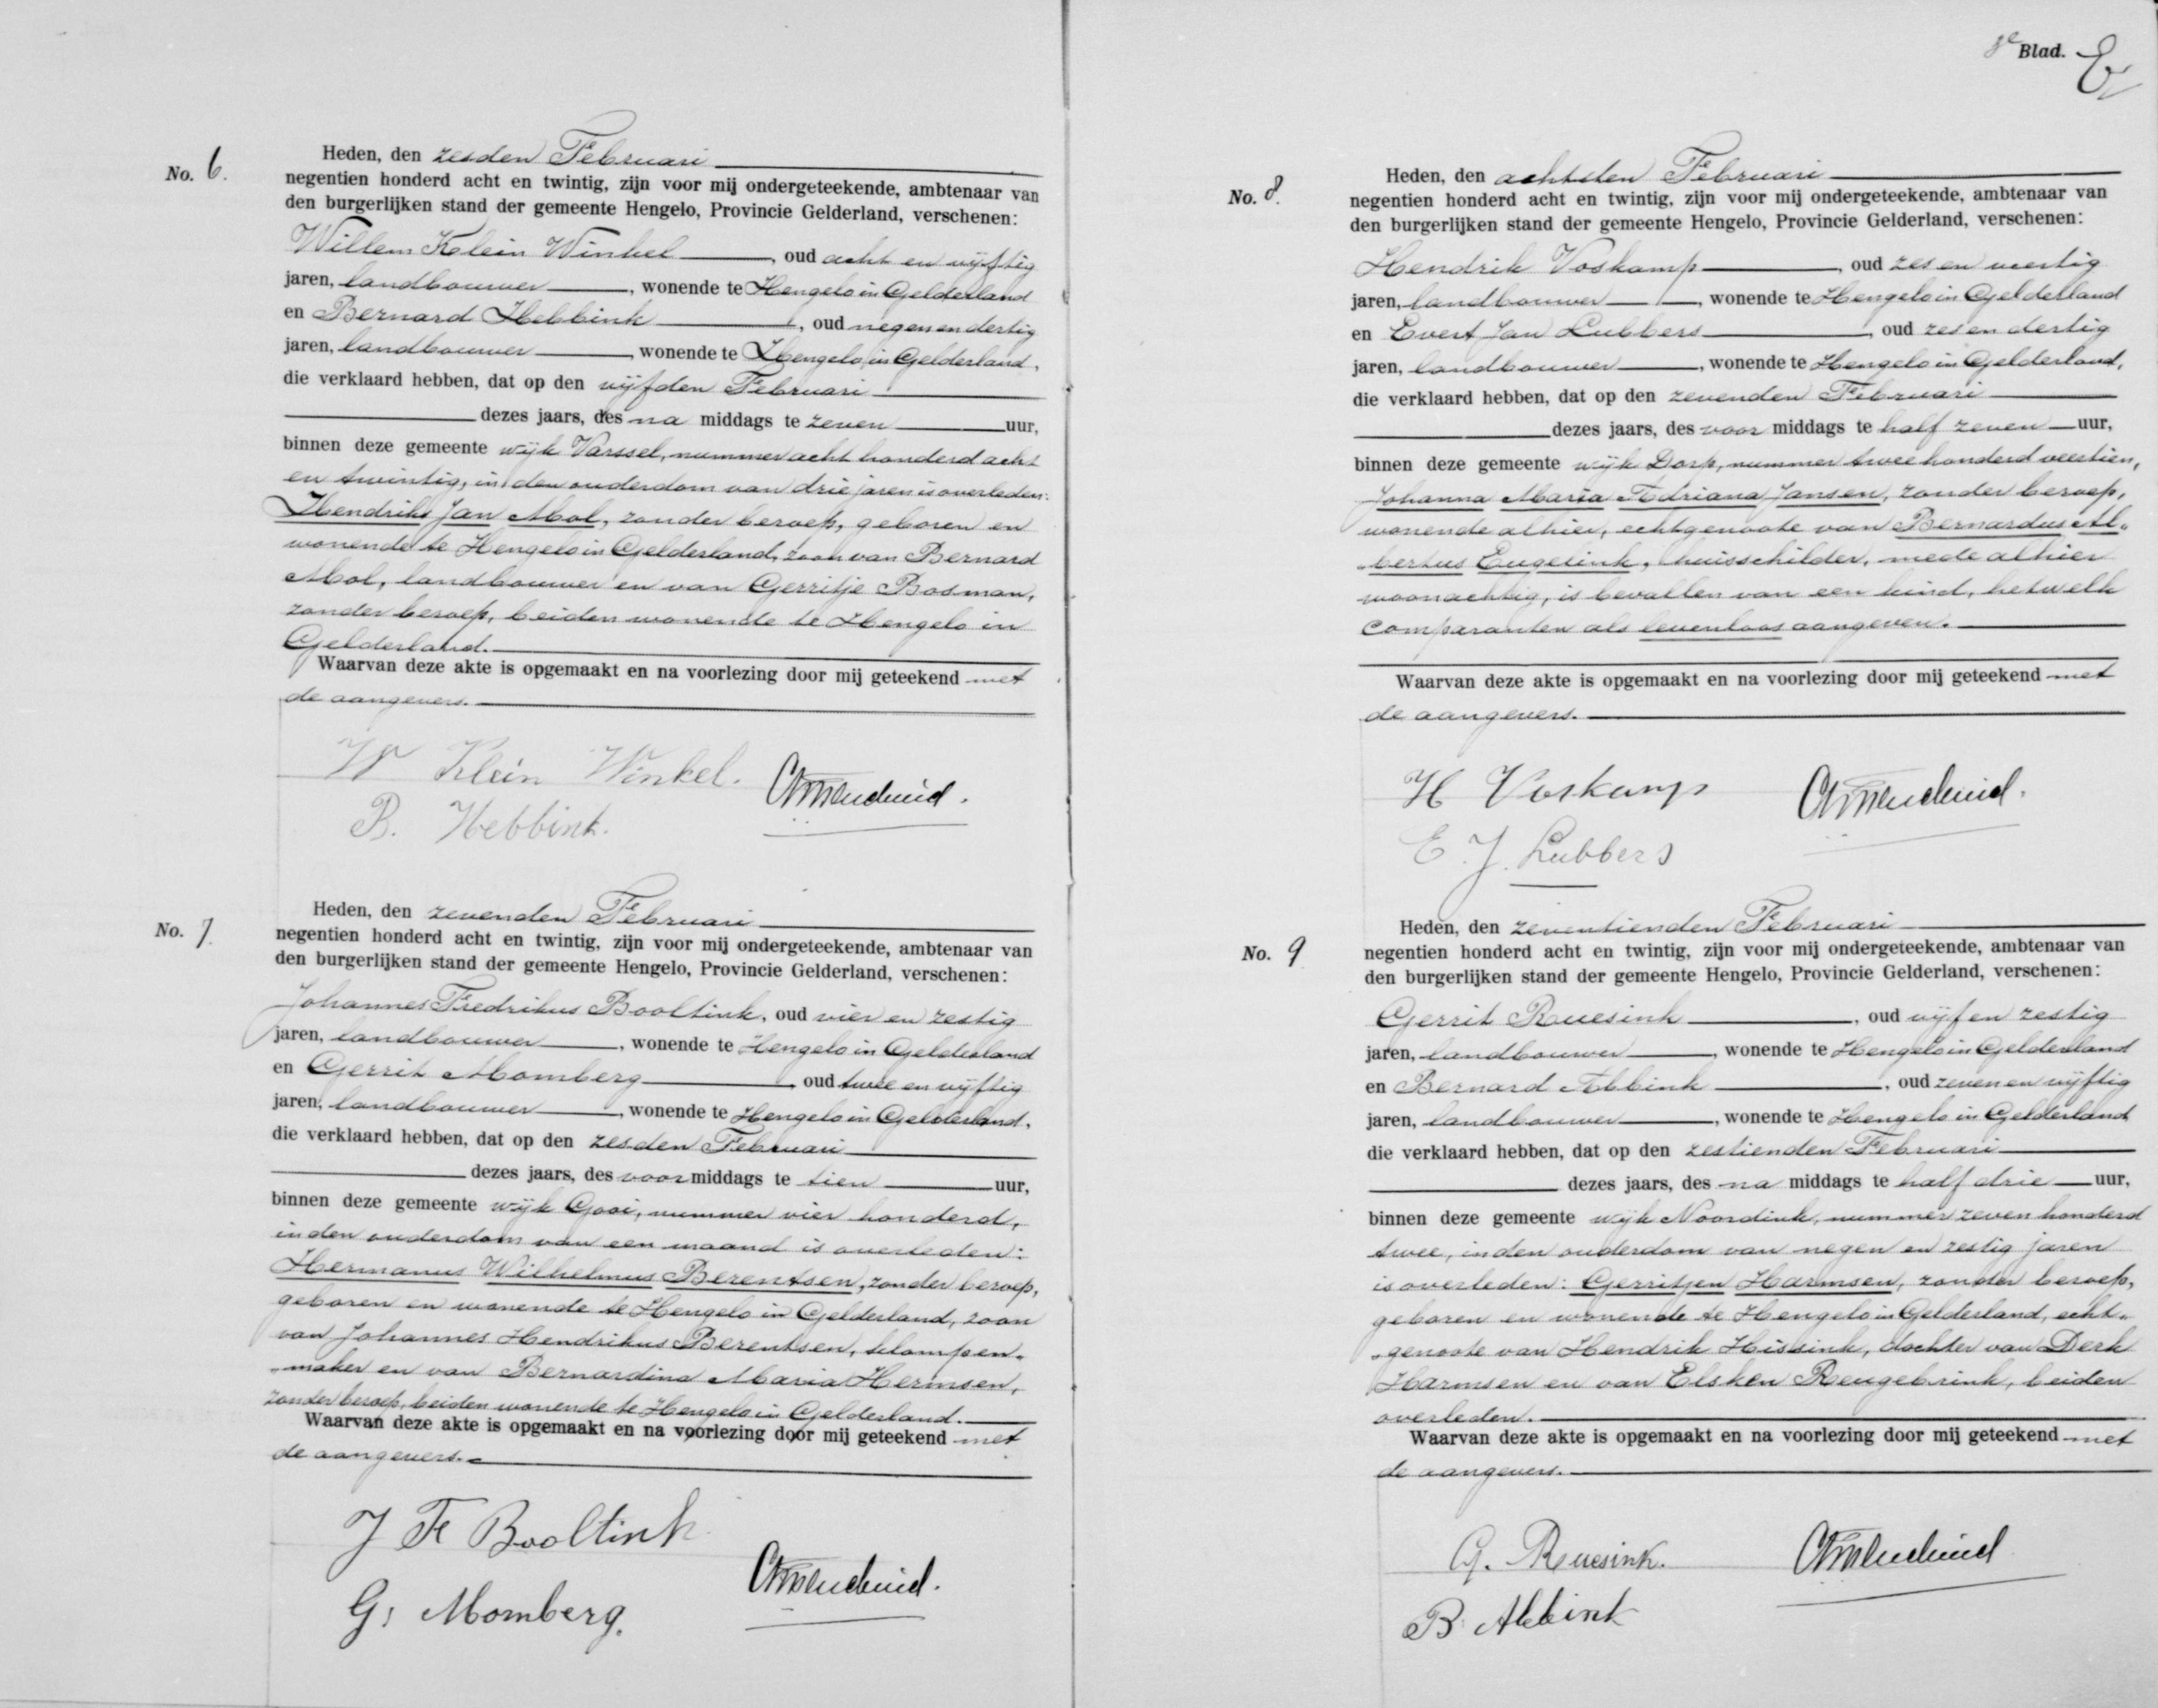 No. 6.
Heden, den zesden Februari
negentien honderd acht en twintig, zijn voor mij ondergeteekende, ambtenaar van
den burgerlijken stand der gemeente Hengelo, Provincie Gelderland, verschenen:
Willem Klein Winkel, oud acht en vijftig
jaren, landbouwer, wonende te Hengelo in Gelderland
en Bernard Hebbink, oud negen en dertig
jaren, landbouwer, wonende te Hengelo in Gelderland,
die verklaard hebben, dat op den vijfden Februari
dezes jaars, des na middags te zeven uur,
binnen deze gemeente wijk Varssel, nummer acht honderd acht
en twintig, in den ouderdom van drie jaren is overleden:
Hendrik Jan Mol, zonder beroep, geboren en
wonende te Hengelo in Gelderland, zoon van Bernard
Mol, landbouwer en van Gerritje Bosman,
zonder beroep, beiden wonende te Hengelo in
Gelderland.
Waarvan deze akte is opgemaakt en na voorlezing door mij geteekend met
de aangevers.
W Klein Winkel.
B. Hebbink.
No. 7.
Heden, den zevenden Februari
negentien honderd acht en twintig, zijn voor mij ondergeteekende, ambtenaar van
den burgerlijken stand der gemeente Hengelo, Provincie Gelderland, verschenen:
Johannes Fredrikus Booltink, oud vier en zestig
jaren, landbouwer, wonende te Hengelo in Gelderland
en Gerrit Momberg, oud twee en vijftig
jaren, landbouwer, wonende te Hengelo in Gelderland,
die verklaard hebben, dat op den zesden Februari
dezes jaars, des voor middags te tien uur,
binnen deze gemeente wijk Gooi, nummer vier honderd,
in den ouderdom van een maand is overleden:
Hermanus Wilhelmus Berentsen, zonder beroep,
geboren en wonende te Hengelo in Gelderland, zoon
van Johannes Hendrikus Berentsen, klompen„
„maker en van Bernardina Maria Hermsen,
zonder beroep, beiden wonende te Hengelo in Gelderland.
Waarvan deze akte is opgemaakt en na voorlezing door mij geteekend met
de aangevers.
J F Booltink
G: Momberg.
8e Blad.
No. 8.
Heden, den achtsten Februari
negentien honderd acht en twintig, zijn voor mij ondergeteekende, ambtenaar van
den burgerlijken stand der gemeente Hengelo, Provincie Gelderland, verschenen:
Hendrik Voskamp, oud zes en veertig
jaren, landbouwer, wonende te Hengelo in Gelderland
en Evert Jan Lubbers, oud zes en dertig
jaren, landbouwer, wonende te Hengelo in Gelderland,
die verklaard hebben, dat op den zevenden Februari
dezes jaars, des voor middags te half zeven uur,
binnen deze gemeente wijk Dorp, nummer twee honderd veertien,
Johanna Maria Adriana Jansen, zonder beroep,
wonende alhier, echtgenoote van Bernardus Al„
„bertus Eugelink, huisschilder, mede alhier
woonachtig, is bevallen van een kind, hetwelk
comparanten als levenloos aangeven.
Waarvan deze akte is opgemaakt en na voorlezing door mij geteekend met
de aangevers.
H Voskamp
E. J. Lubbers
No. 9
Heden, den zeventienden Februari
negentien honderd acht en twintig, zijn voor mij ondergeteekende, ambtenaar van
den burgerlijken stand der gemeente Hengelo, Provincie Gelderland, verschenen:
Gerrit Ruesink, oud vijf en zestig
jaren, landbouwer, wonende te Hengelo in Gelderland
en Bernard Abbink, oud zeven en vijftig
jaren, landbouwer, wonende te Hengelo in Gelderland
die verklaard hebben, dat op den zestienden Februari
dezes jaars, des na middags te half drie uur,
binnen deze gemeente wijk Noordink, nummer zeven honderd
twee, in den ouderdom van negen en zestig jaren
is overleden: Gerritjen Harmsen, zonder beroep,
geboren en wonende te Hengelo in Gelderland, echt„
„genoote van Hendrik Hissink, dochter van Derk
Harmsen en van Elsken Reugebrink, beiden
overleden.
Waarvan deze akte is opgemaakt en na voorlezing door mij geteekend met
de aangevers.
G. Ruesink.
B. Abbink